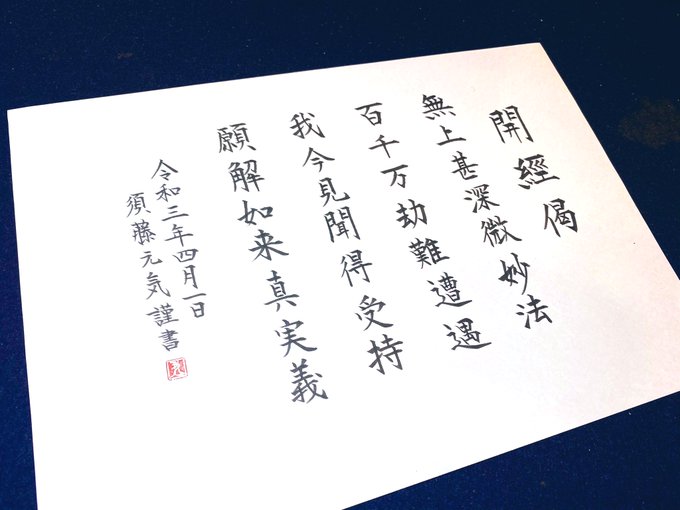 開經偈
無上甚深微妙法
百千万劫難遭遇
我今見聞得受持
願解如来真実義
令和三年四月一日
須藤元気謹書